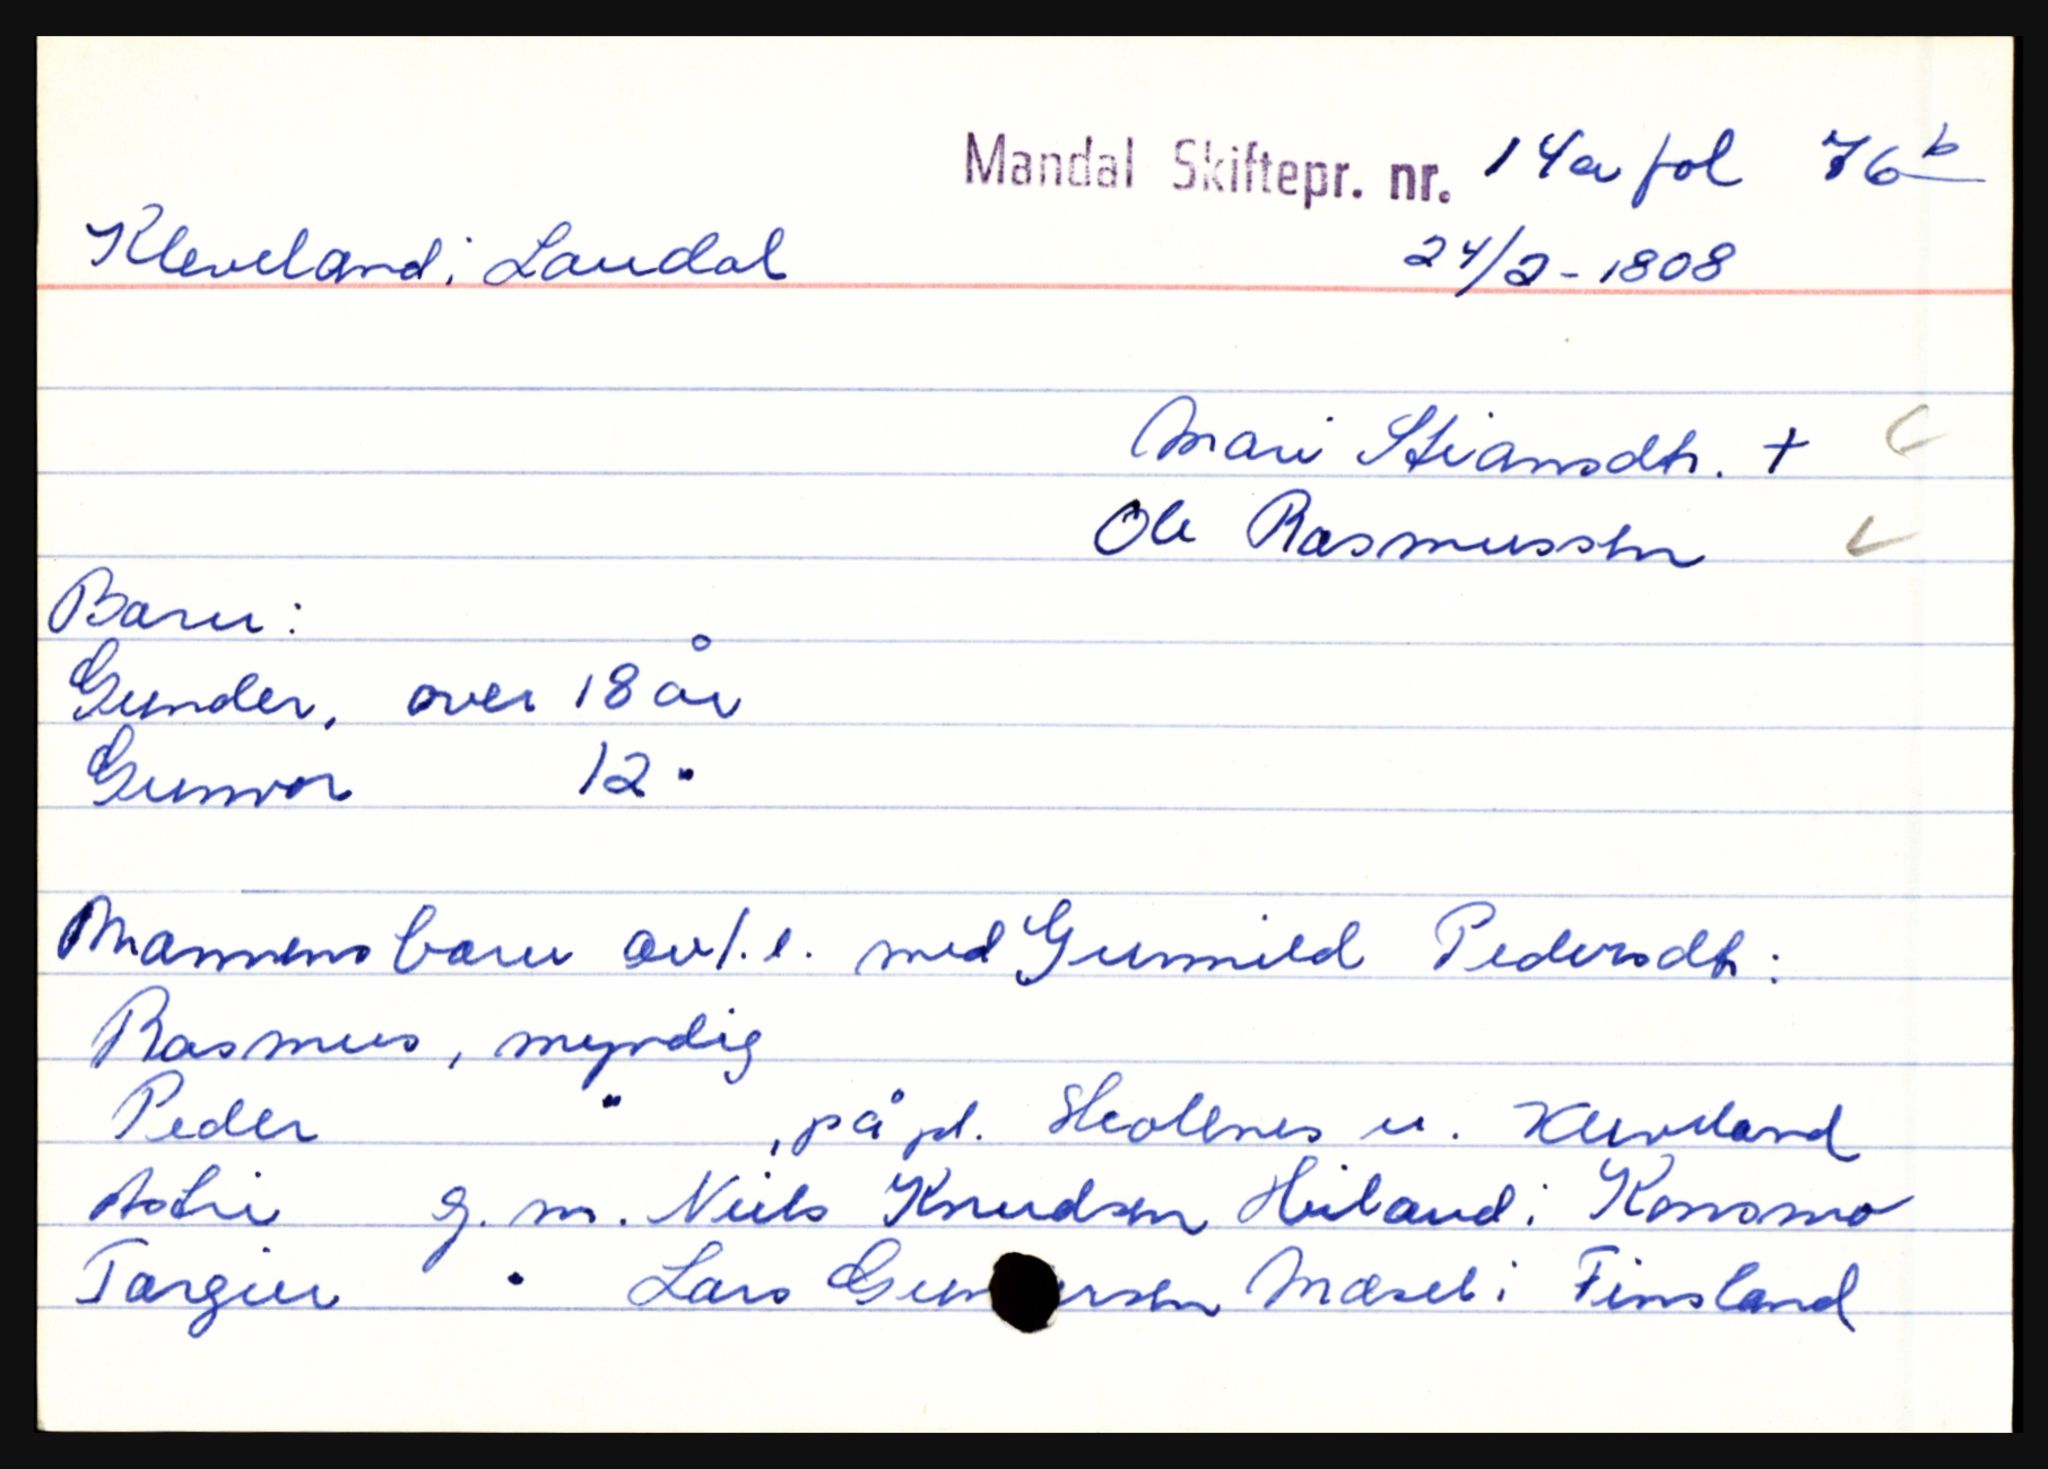 Mandal Skiftepr. nr. 14a fol 76b
Kleveland i Laudal 24/2-1808
Mari Stiansdtr. +
Ole Rasmussen
Barn:
Gunder, over 18 år
Gunvor 12 "
Mannens barn av 1.e. med Gunnild Pedersdtr:
Rasmus, myndig
Peder " , på pl. u. Kleveland
Astri g. m. Niels Knudsen i Konsmo
Targier " Lars Gun ersen Mæsel i Finsland